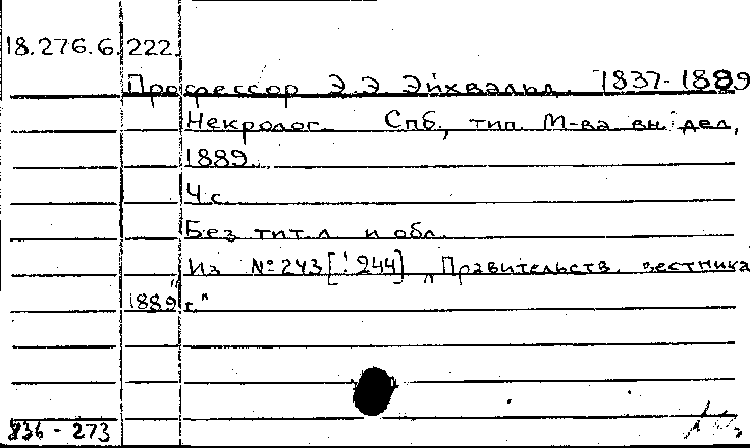 18.276.6.222.
Профессор Э.Э. Эйхвальд. 1837-1889
Некролог. Спб., тип. М-ва вн. дел,
1889.
4 с.
Без тит. л. и обл.
Из №243 [! 244] „Правительств. вестника
1889 г."
836 - 273